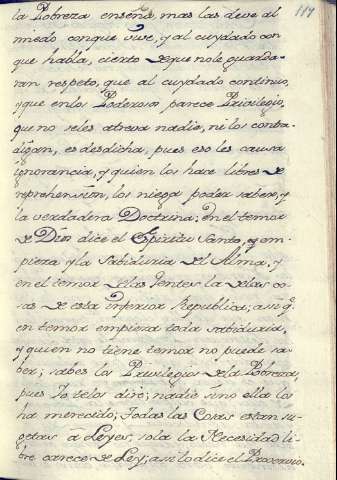 117
la Pobreza enseña, mas las deve al
miedo conque vive, y al cuydado con
que habla, cierto de que no le guarda-
ran respeto, que al cuydado continuo,
y que en los Poderosos parece Privilegio,
que no seles atreva nadie, ni los contra-
digan, es desdicha, pues eso les causa
ignorancia, y quien los hace libres de
reprehension, los niega poder saber, y
la verdadera Doctrina; en el temor
de Dios dice el Espiritu Santo, q̃ em-
pieza ya la Sabiduria del Alma, y
en el temor de las Gentes la de las co-
sas de esta inferior Republica; asi q̃
en temor empieza toda sabiduria,
y quien no tiene temor no puede sa-
ber; sabes los Privilegios de la Pobreza,
pues Yo telos diré; nadie sino ella los
ha merecido; Todas las Cosas estan su-
getas á Leyes, sola la Necesidad li-
bre carece de Ley; asi lo dice el Provervio.